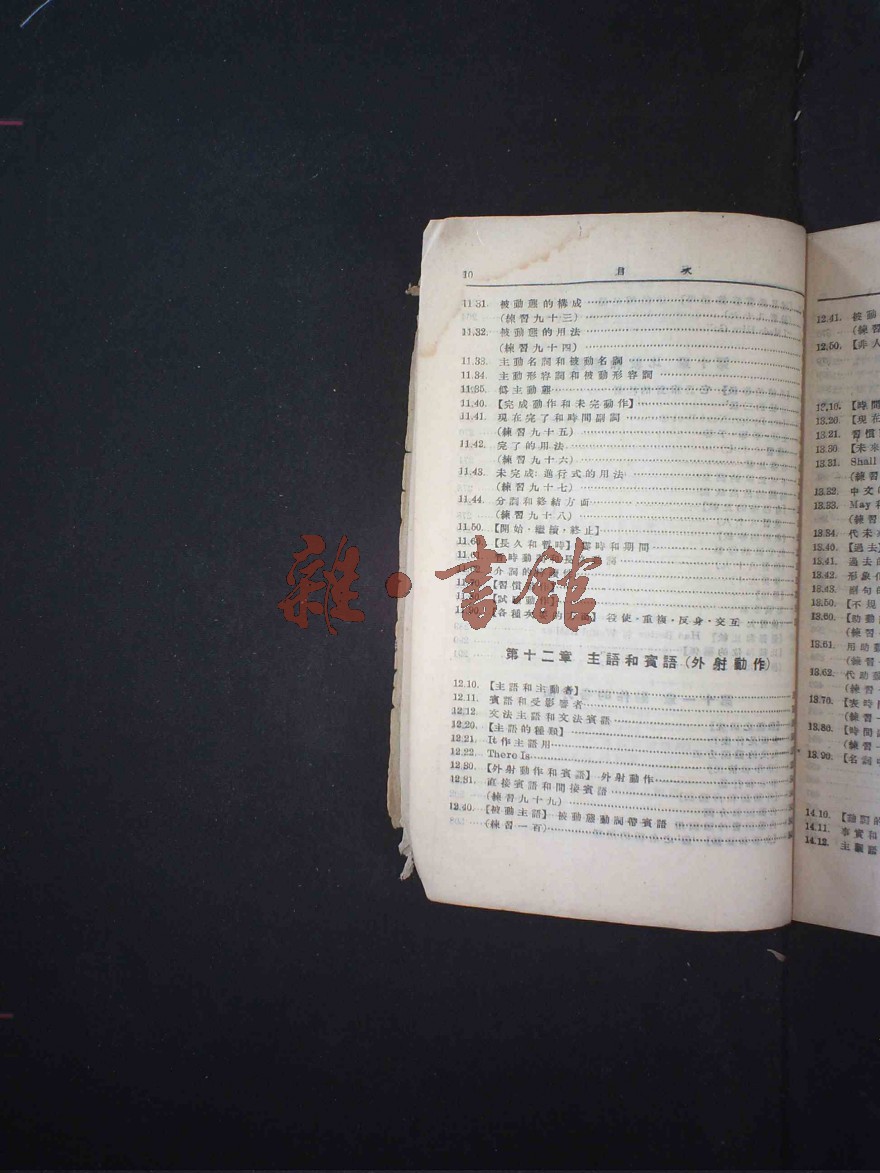 10 目次
11.31. 被動態的構成
(練習九十三)
11.32. 被動態的用法
(練習九十四)
11.33. 主動名詞和被動名詞
11.34. 主動形容詞和被動形容詞
11.35.
11.40. 【完成動作和未完動作】
11.41. 現在完了和時間副詞
(練習九十五)
11.42. 完了的用法
(練習九十六)
11.43. 未完成:進行式的用法
(練習九十七)
11.44. 分詞和終結方面
(練習九十八)
11.50. 【開始·繼續·終止】
【長久和暫時】 時和期間
介詞的
【習慣
【試
【各種 重複·反身·交互
雜·書館
第十二章 主語和賓語(外射動作)
12.10. 【主語和主動者】
12.11. 賓語和受影響者
12.12. 文法主語和文法賓語
12.20. 【主語的種類】
12.21. It作主語用
12.22. There Is
12.30. 【外射動作和賓語】 外射動作
12.31. 直接賓語和間接賓語
(練習九十九)
12.40. 【被動主語】 被動態動詞帶賓語
(練習一百)
12.41. 被動
(練習
12.50. 【非人
13.10. 【時間
13.20. 【現在
13.21. 習慣
13.30. 【未來
13.31. Shall
(練習
13.32. 中文
13.33. May和
(練習
13.34. 代未來
13.40. 【過去】
13.41. 過去的
13.42. 形象
13.43. 副句的
13.50. 【不規
13.60. 【助動
(練習
13.61. 用助動
(練習一
13.62. 代助動
(練習一
13.70. 【表時間
(練習一
13.80. 【時間
(練習一
13.90. 【名詞
14.10. 【動詞的
14.11. 事實和
14.12. 主觀語